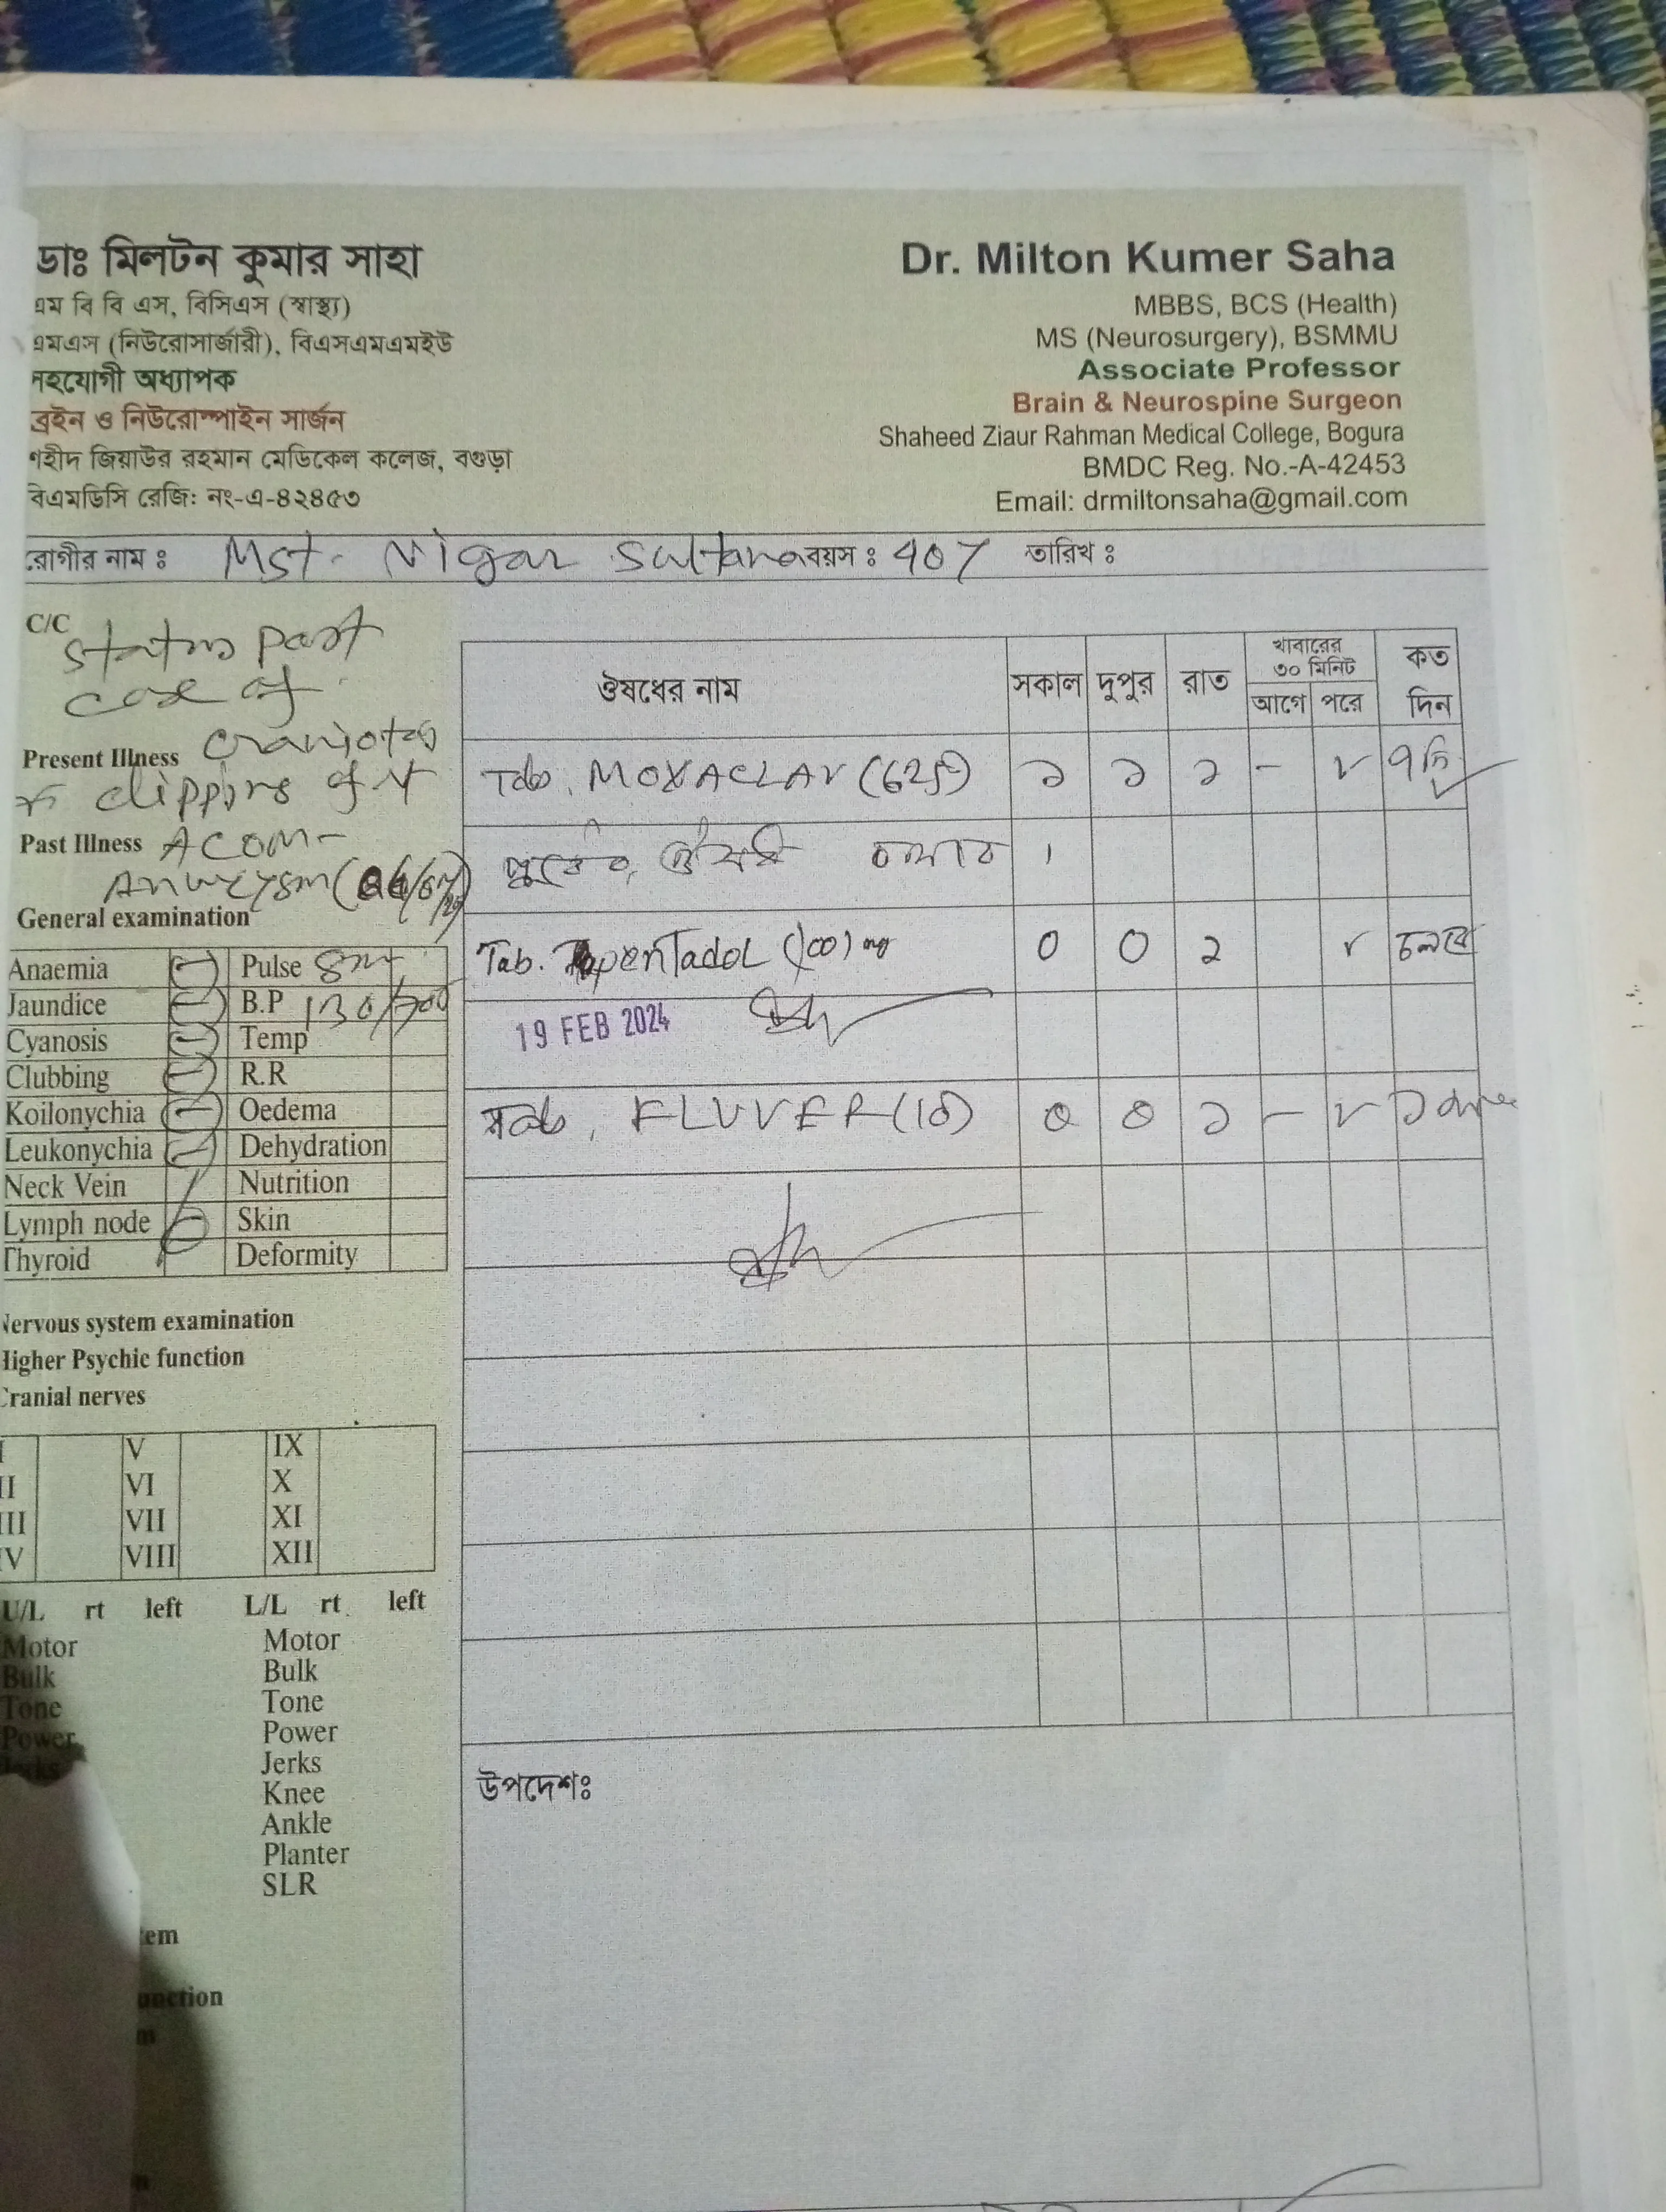 ডাঃ মিলটন কুমার সাহা
এম বি বি এস, বিসিএস (স্বাস্থ্য)
এমএস (নিউরোসার্জারী), বিএসএমএমইউ
সহযোগী অধ্যাপক
ব্রেইন ও নিউরোস্পাইন সার্জন
শহীদ জিয়াউর রহমান মেডিকেল কলেজ, বগুড়া
বিএমডিসি রেজি: নং-এ-৪২৪৫৩
Dr. Milton Kumer Saha
MBBS, BCS (Health)
MS (Neurosurgery), BSMMU
Associate Professor
Brain & Neurospine Surgeon
Shaheed Ziaur Rahman Medical College, Bogura
BMDC Reg. No.-A-42453
Email: drmiltonsaha@gmail.com
রোগীর নাম ঃ Mst. Nigar Sultana বয়স ঃ 40 তারিখ ঃ
C/C
status post
case of
Present Illness
clipping of
Past Illness ACOM-
General examination
Anaemia (-) Pulse
Jaundice (-) B.P 130/
Cyanosis (-) Temp
Clubbing (-) R.R
Koilonychia (-) Oedema
Leukonychia (-) Dehydration
Neck Vein Nutrition
Lymph node Skin
Thyroid Deformity
Nervous system examination
Higher Psychic function
Cranial nerves
I V IX
II VI X
III VII XI
IV VIII XII
U/L rt left L/L rt. left
Motor Motor
Bulk Bulk
Tone Tone
Power Power
Jerks Jerks
Knee
Ankle
Planter
SLR
tem
unction
m
ঔষধের নাম সকাল দুপুর রাত খাবারের ৩০ মিনিট আগে পরে কত দিন
Tab. MOXACLAV (625) ১ ১ ১ -
পূর্বের ঔষধ চলবে ।
Tab. Tapentadol (100) mg 0 0 ১ চলবে
19 FEB 2024
Tab. FLUVER (10) 0 0 ১ -
উপদেশঃ